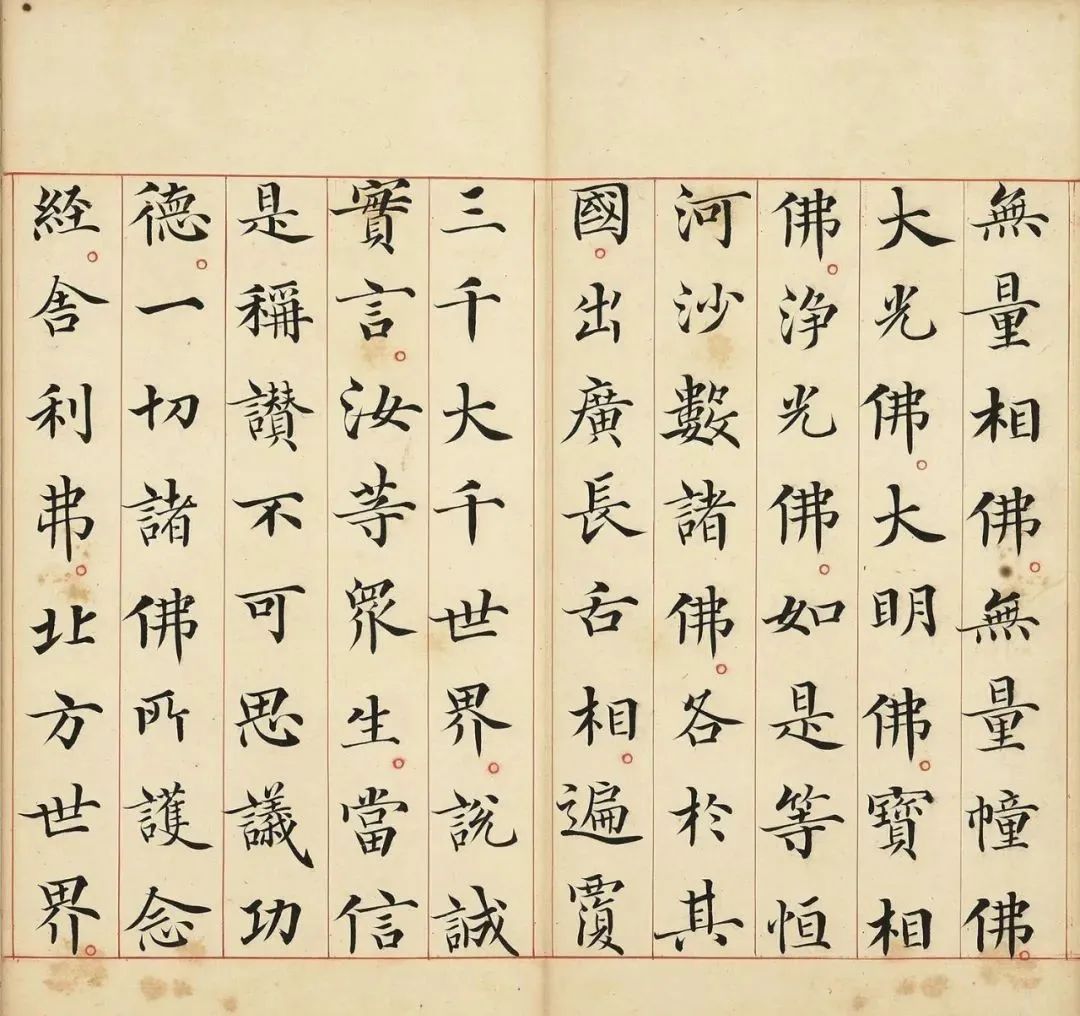 無量相佛。無量幢佛。
大光佛。大明佛。寶相
佛。浄光佛。如是等恒
河沙數諸佛。各於其
國。出廣長舌相。遍覆
三千大千世界。説誠
實言。汝等衆生。當信
是稱讃不可思議功
德。一切諸佛所護念
経。舎利弗。北方世界。